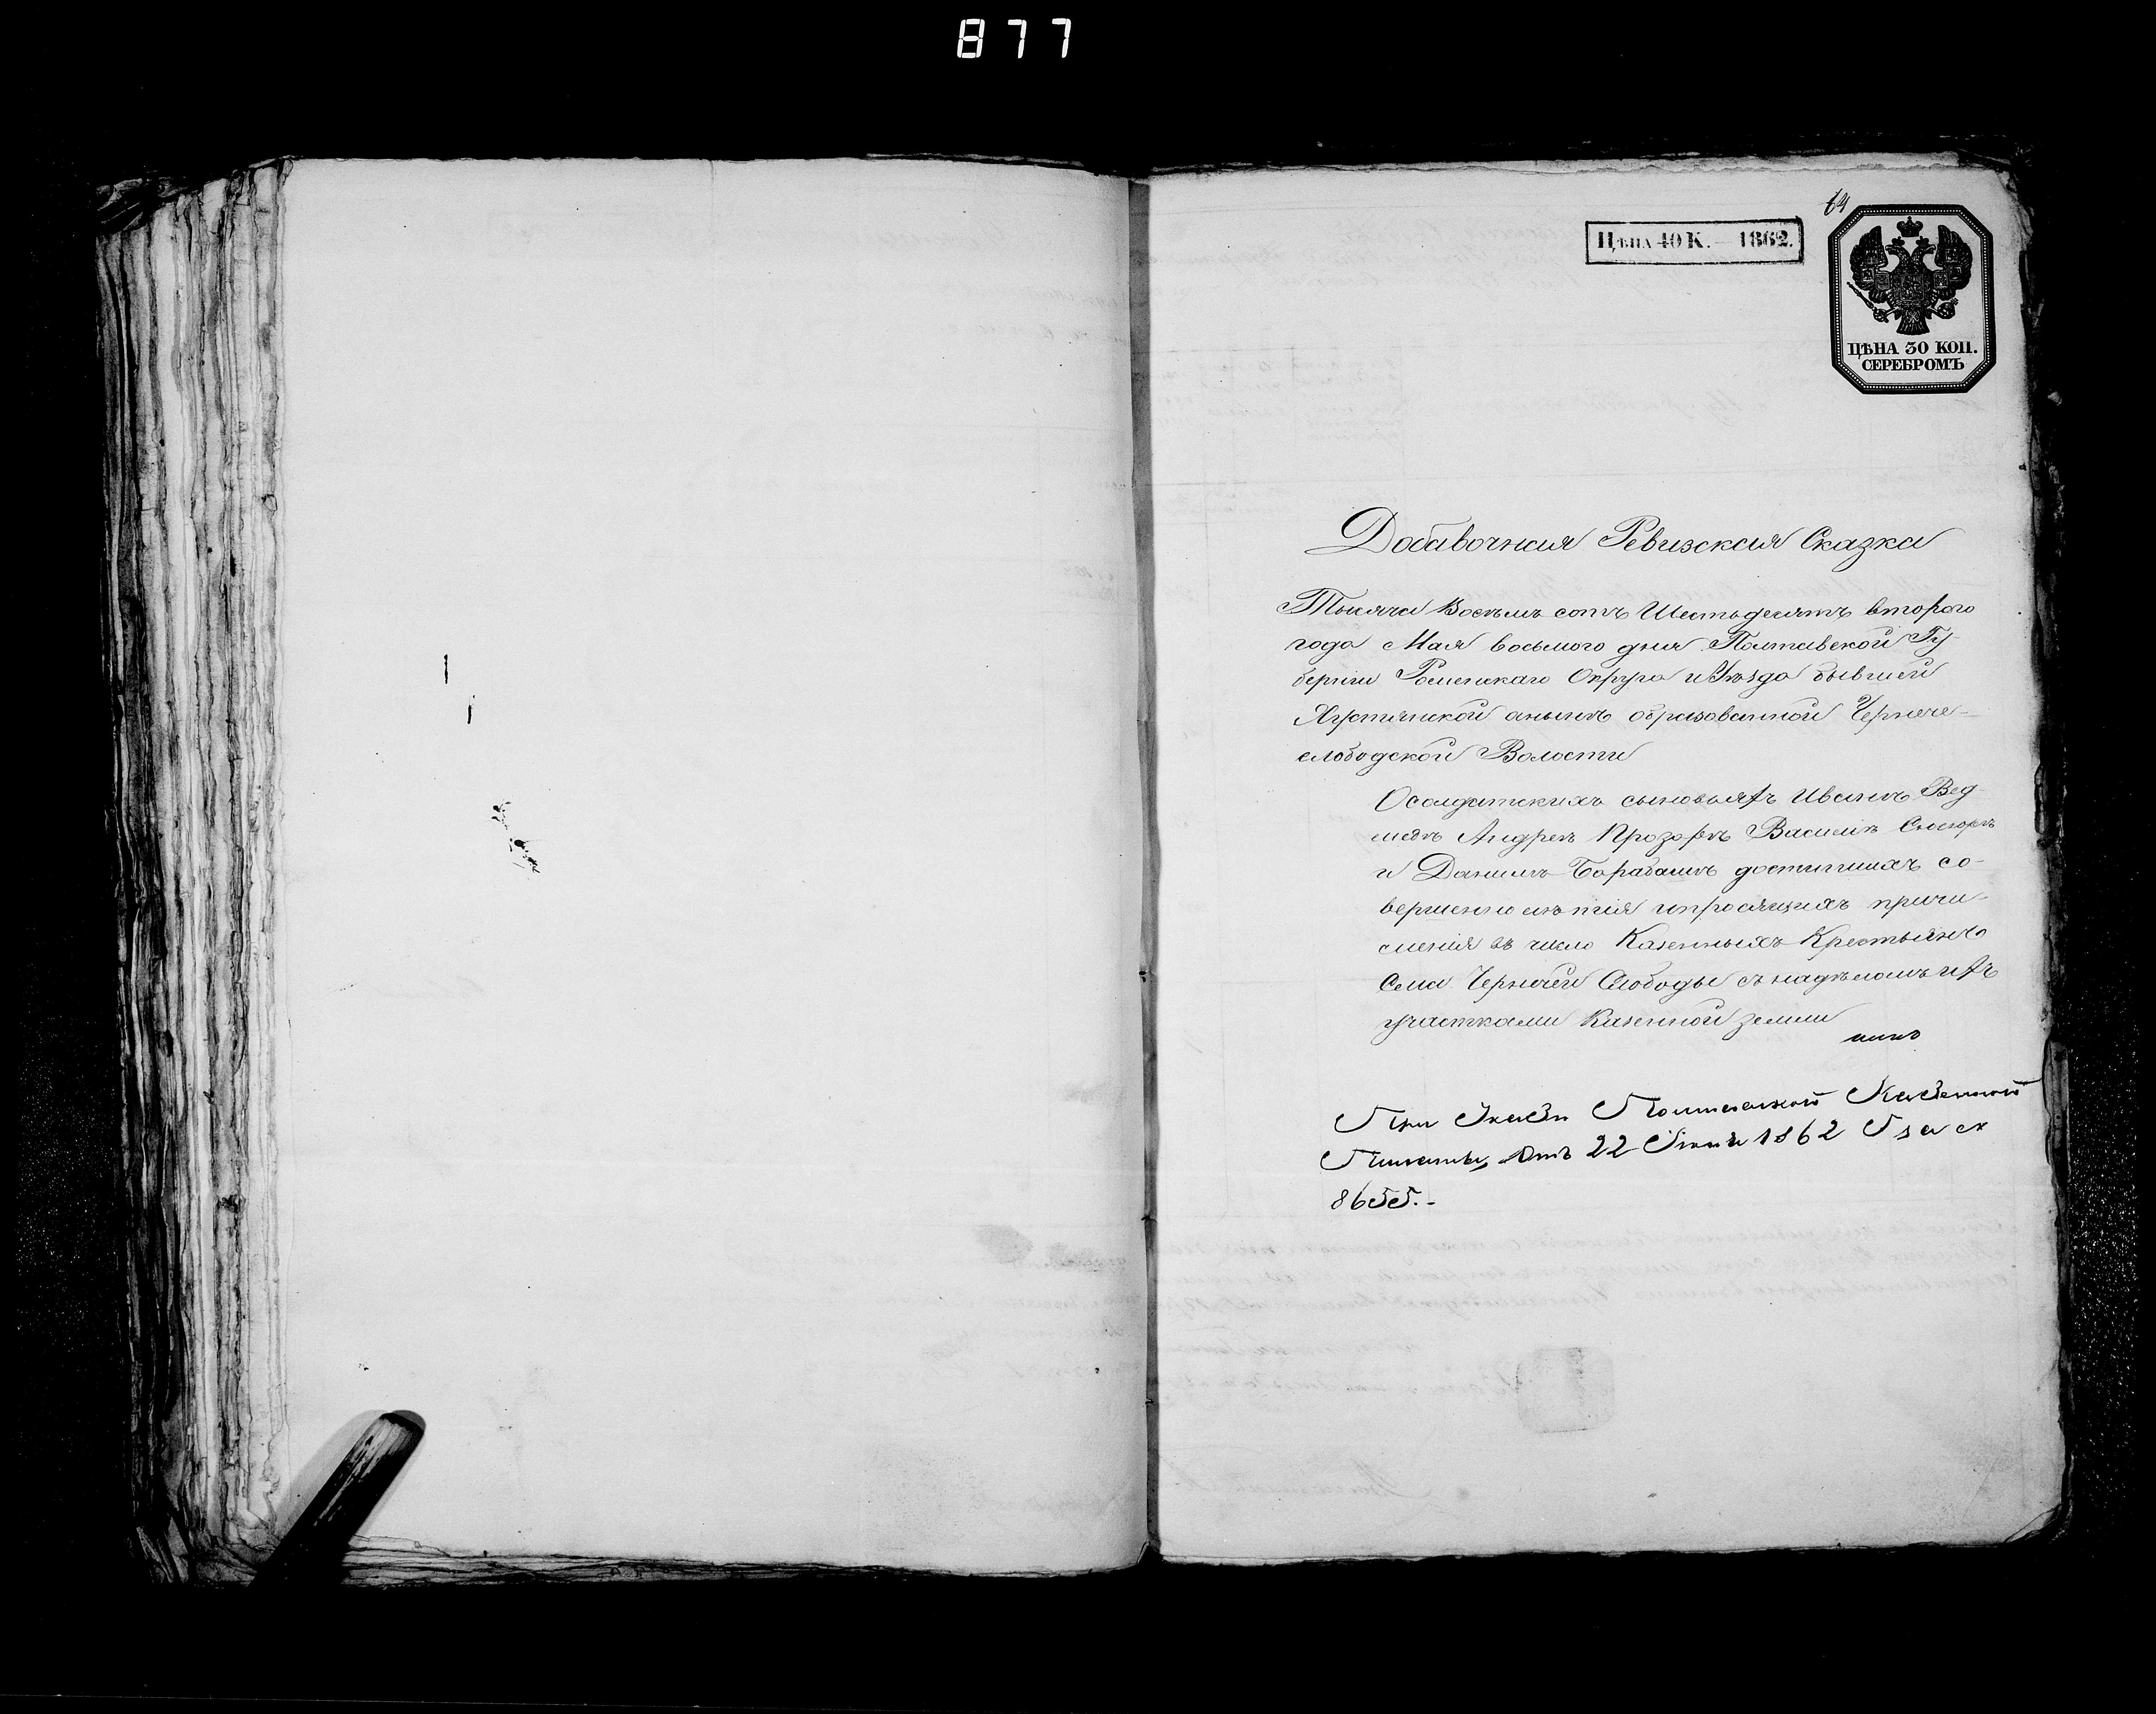 877
64
Цѣна 40 К. — 1862.
ЦѢНА 30 КОП.
СЕРЕБРОМЪ
Добавочная Ревизская Сказка
Тысяча Восемъ сотъ Шестьдесятъ второго
года Мая восьмого дня Полтавской Гу-
берніи Роменскаго Округа и Уѣзда бывшей
анынѣ образованной Чернече-
слободской Волости
Осолдатскихъ сыновьяхъ Иванѣ Вед
медѣ Андреѣ Василіѣ
и Данилѣ Барабашѣ достигшихъ со-
вершеннолѣтія ипросящихъ причи-
сленія въ число Казенныхъ Крестьянъ
Села Чернечей Слободы съ надѣломъ ихъ
участками Казенной земли
При Указѣ Полтавской Казенной
Палаты, Отъ 22 1862 Года
8655.-